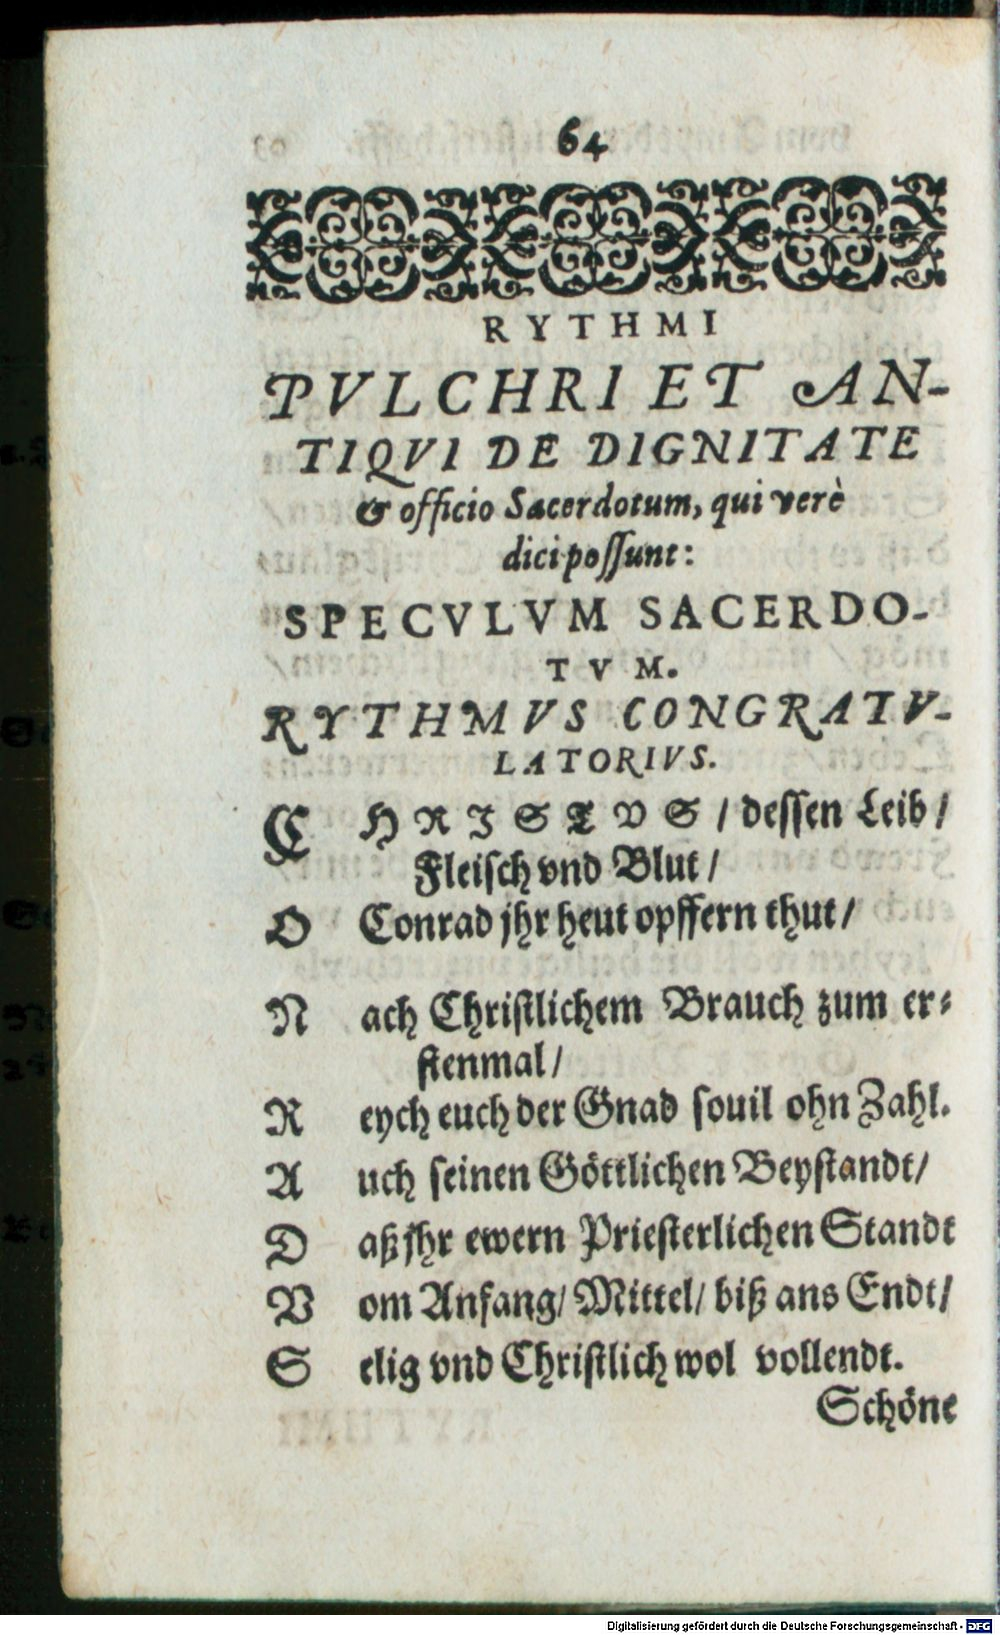 64
RYTHMI
PVLCHRI ET AN-
TIQVI DE DIGNITATE
& officio Sacerdotum, qui verè
dici possunt:
SPECVLVM SACERDO-
TVM.
RYTHMVS CONGRATV-
LATORIVS.
CHRISTVS / dessen Leib /
Fleisch vnd Blut /
O Conrad jhr heut opffern thut /
Nach Christlichem Brauch zum er-
stenmal /
Reych euch der Gnad souil ohn Zahl.
Auch seinen Göttlichen Beystandt /
Daß jhr ewern Priesterlichen Standt
Vom Anfang / Mittel / biß ans Endt /
Selig vnd Christlich wol vollendt.
Schöne
Digitalisierung gefördert durch die Deutsche Forschungsgemeinschaft - DFG